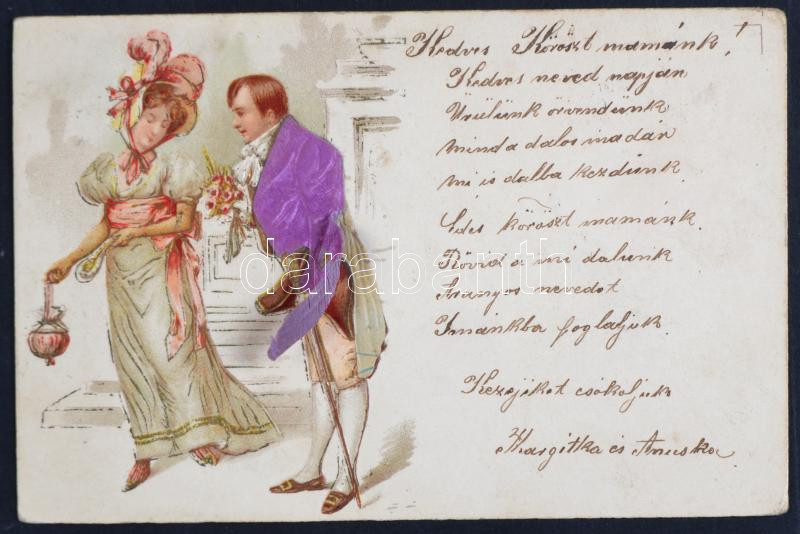 Kedves Köröszt mamánk!
Kedves neved napján
Örülünk örvendünk
mind a dalos madár
mi is dalba kezdünk.
Édes köröszt mamánk.
Rövid a mi dalunk
Aranyos nevedet
Imánkba foglaljuk.
Kezejiket csókoljuk
Margitka és Annuska
darabanth